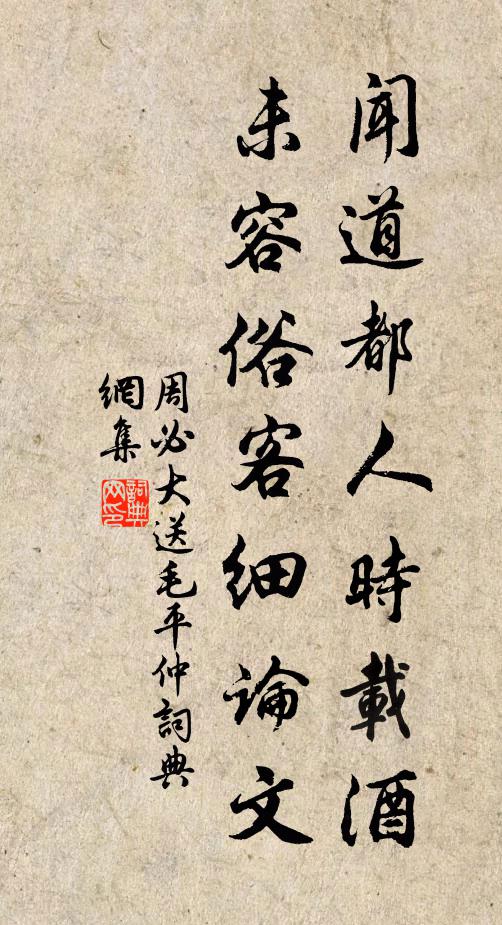 聞道都人時載酒
未容俗客細論文
周必大送毛平仲詞典
網集
詞典网印